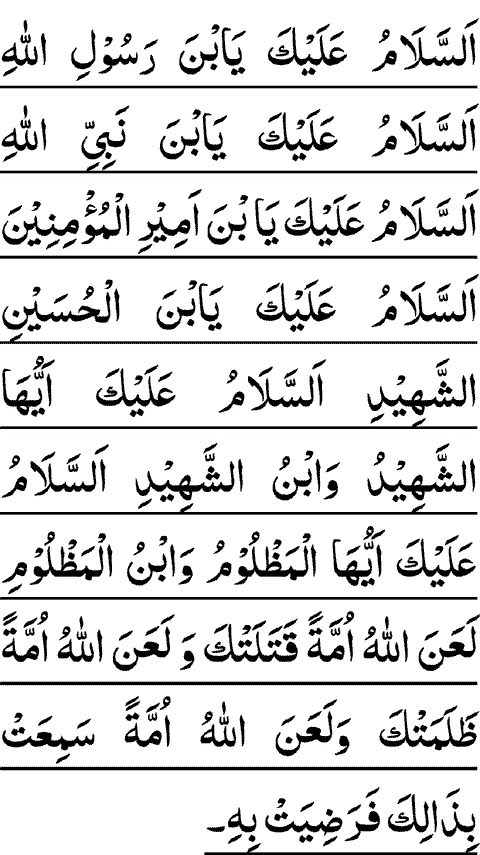 اَلسَّلَامُ عَلَيْكَ يَابْنَ رَسُوْلِ اللهِ
اَلسَّلَامُ عَلَيْكَ يَابْنَ نَبِيِّ اللهِ
اَلسَّلَامُ عَلَيْكَ يَابْنَ اَمِيْرِ الْمُؤْمِنِيْنَ
اَلسَّلَامُ عَلَيْكَ يَابْنَ الْحُسَيْنِ
الشَّهِيْدِ اَلسَّلَامُ عَلَيْكَ اَيُّهَا
الشَّهِيْدُ وَابْنُ الشَّهِيْدِ اَلسَّلَامُ
عَلَيْكَ اَيُّهَا الْمَظْلُوْمُ وَابْنُ الْمَظْلُوْمِ
لَعَنَ اللهُ اُمَّةً قَتَلَتْكَ وَ لَعَنَ اللهُ اُمَّةً
ظَلَمَتْكَ وَلَعَنَ اللهُ اُمَّةً سَمِعَتْ
بِذَالِكَ فَرَضِيَتْ بِهِ۔